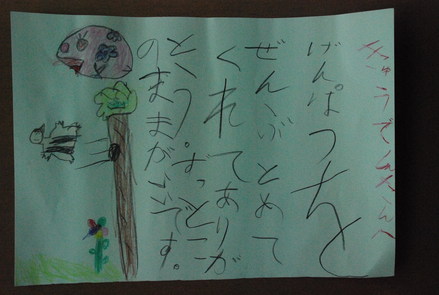 きゅうでんさんへ
げんぱつを
ぜんぶとめて
くれてありが
とう。ずっとこ
のままがいいです。